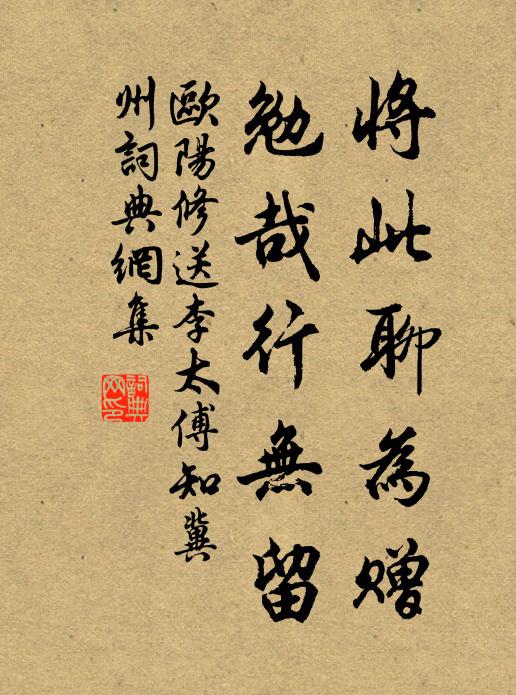 將此聊為贈
勉哉行無留
歐陽修送李太傅知冀
州詞典網集
詞典網印